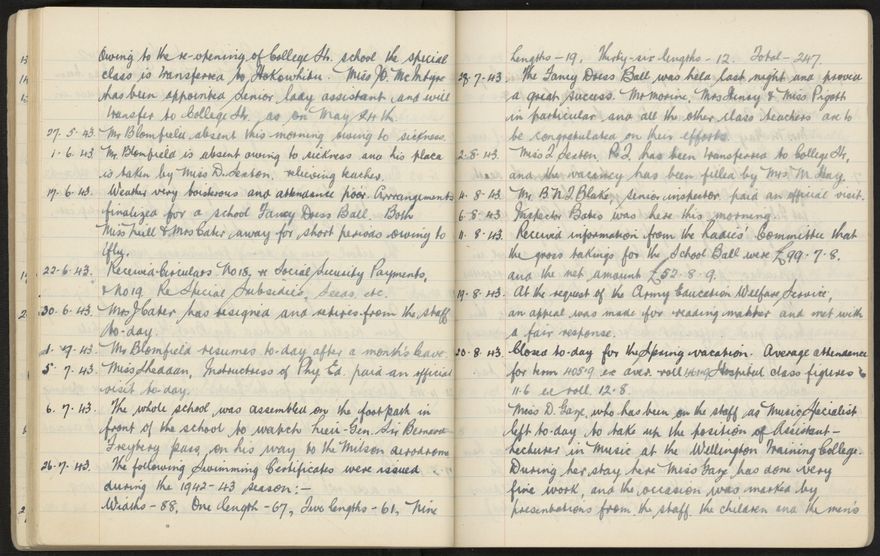 owing to the re-opening of College St. school the special
class is transferred to Hokowhitu. Miss D. McIntyre
has been appointed senior lady assistant and will
transfer to College St. as on May 24th.
27.5.43. Mr Blomfield absent this morning owing to sickness.
1.6.43. Mr Blomfield is absent owing to sickness and his place
is taken by Miss D. Seaton, relieving teacher.
17.6.43. Weather very boisterous and attendance poor. Arrangements
finalized for a school Fancy Dress Ball. Both
Miss & Mrs Cater away for short periods owing to
'flu.
22.6.43. Received Circulars No 18, re Social Security Payments,
& No 19 Re Special Subsidies, Seeds, etc.
30.6.43. Mrs J Cater has resigned and retires from the staff
to-day.
1.7.43. Mr Blomfield resumes to-day after a month's leave.
5.7.43. Miss Sheahan, Instructress of Phy. Ed. paid an official
visit to-day.
6.7.43. The whole school was assembled on the footpath in
front of the school to watch Lieut-Gen. Sir Bernard
Freyberg pass, on his way to the Milson aerodrome.
26.7.43. The following Swimming Certificates were issued
during the 1942-43 season:-
Widths-88, One length-67, Two lengths-61, Nine
lengths-19, Thirty-six lengths-12. Total-247.
28.7.43. The Fancy Dress Ball was held last night and proved
a great success. Mr Morine, Mrs Henry & Miss Pigott
in particular and all the other class teachers are to
be congratulated on their efforts.
2.8.43. Miss Seaton, has been transferred to College St,
and the vacancy has been filled by Mrs M. Hay.
4.8.43. Mr. B. N. T. Blake, senior inspector paid an official visit.
6.8.43. Inspector Bates was here this morning.
11.8.43. Received information from the Ladies' Committee that
the gross takings for the School Ball were £99.7.8.
and the net amount £52.8.9.
19.8.43. At the request of the Army Education Welfare Service,
an appeal was made for reading matter and met with
a fair response.
20.8.43. Closed to-day for the Spring vacation. Average attendance
for term 405.9 ex aver. roll Hospital class figures
11.6 ex roll 12.8.
Miss D. Gaze, who has been on the staff as Music Specialist
left to-day to take up the position of Assistant-
Lecturer in Music at the Wellington Training College.
During her stay here Miss Gaze has done very
fine work, and the occasion was marked by
presentations from the staff the children and the men's